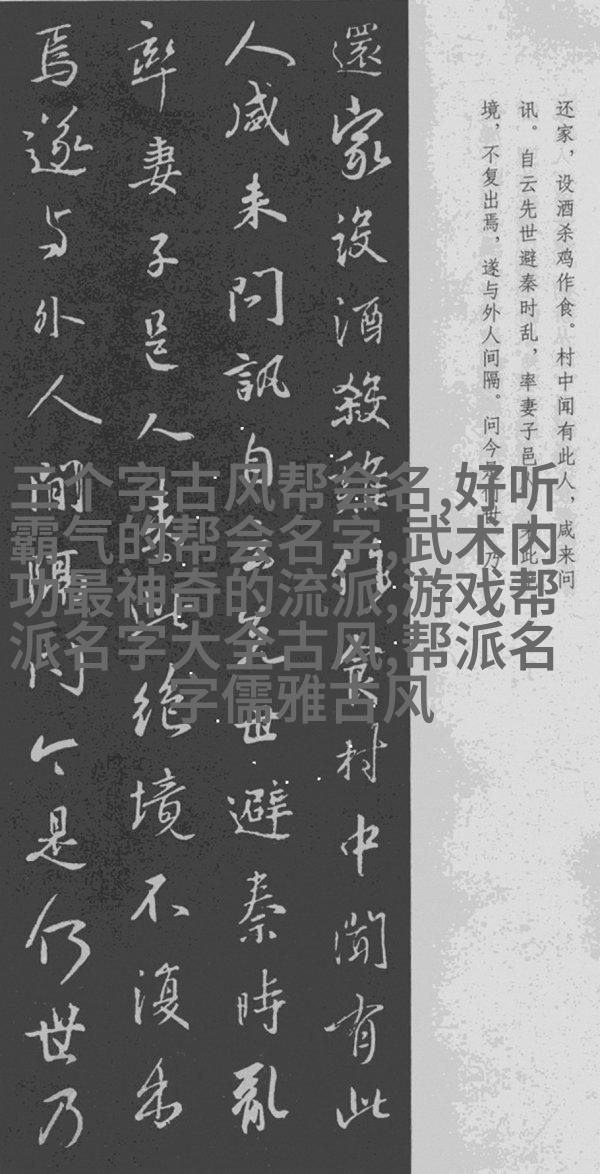 还家，设酒杀鸡作食。村中闻有此人，咸来问
讯。自云先世避秦时乱，率妻子邑人，来此
境，不复出焉，遂与外人间隔。问今是何世，乃
還家設酒殺雞作食村中聞有此
人咸来問訊自云先世避秦時亂
率妻子邑人来此絕境不復出
焉遂与外人間隔问今是何世乃
三个字古风帮会名,好听
霸气的帮会名字,武术内
功最神奇的流派,游戏帮
派名字大全古风,帮派名
字儒雅古风